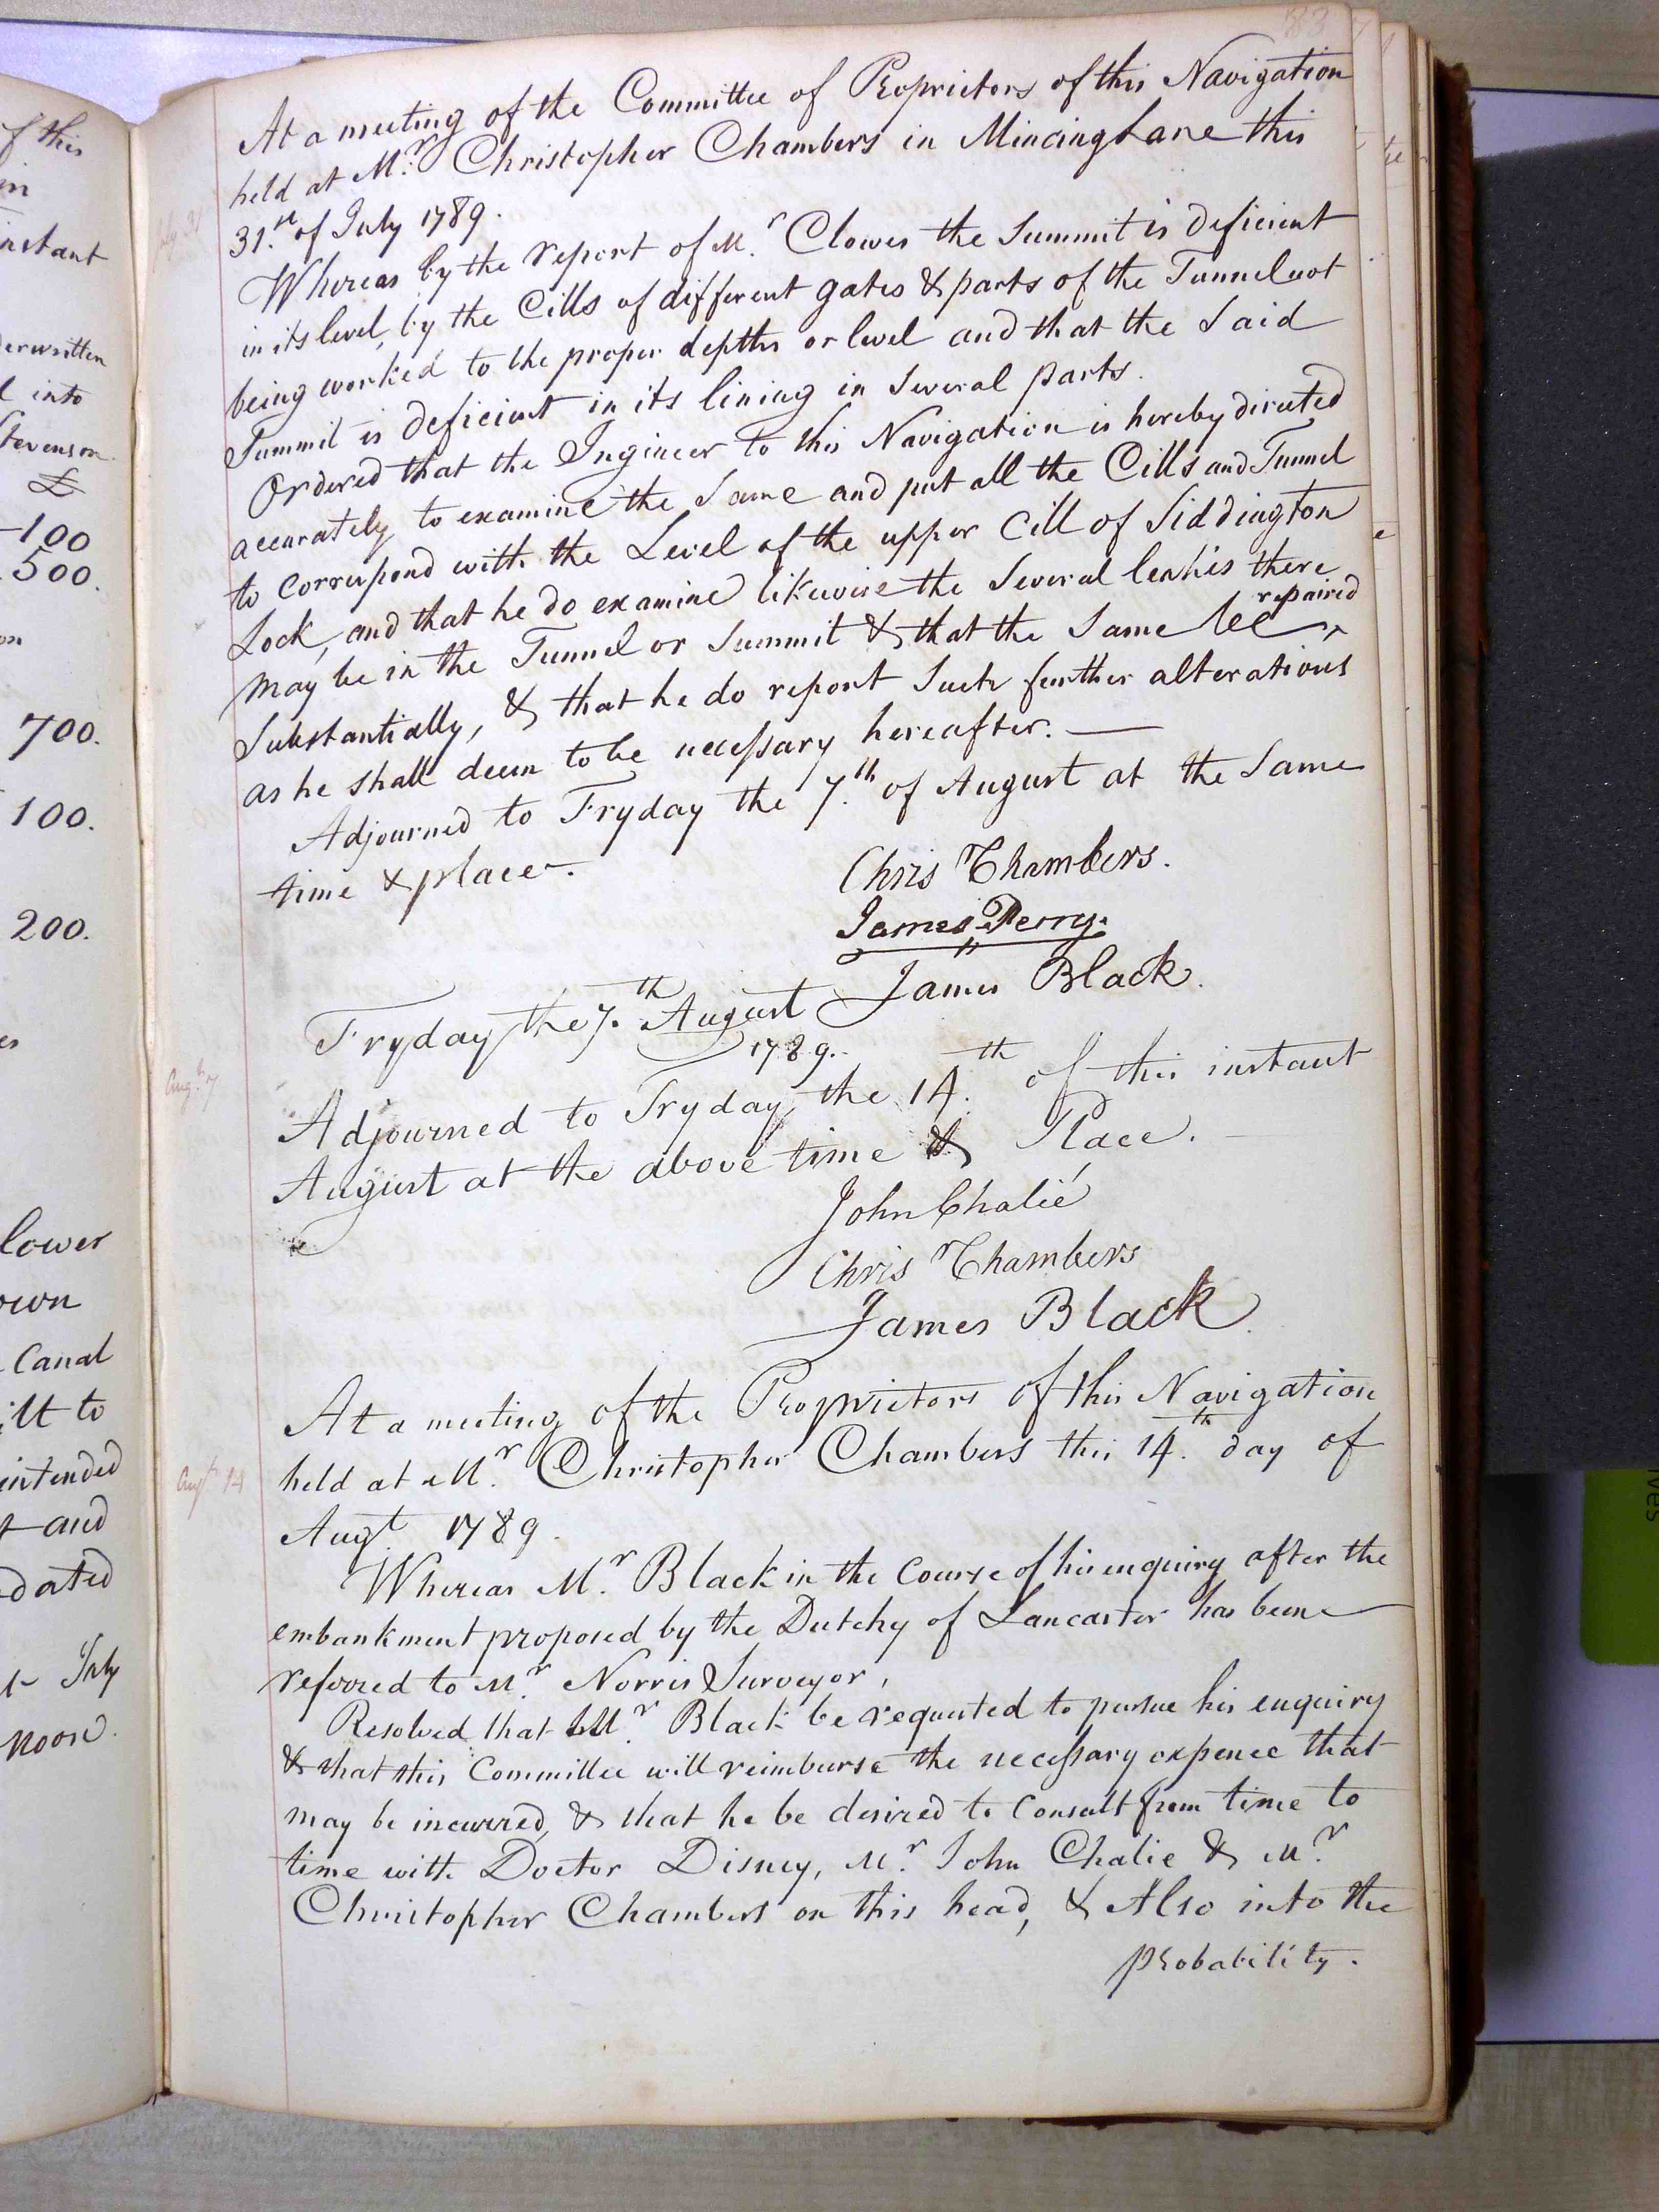 f this
instant
erwritten
into
Stevenson
£
100
500.
700.
100.
200.
lower
own
Canal
ilt to
intended
and
dated
July
noon.
83
At a meeting of the Committee of Proprietors of this Navigation
held at Mr. Christopher Chambers in Mincing Lane this
July 31
31.st of July 1789.
Whereas by the report of Mr. Clowes the Summit is deficient
in its level, by the Cills of different gates & parts of the Tunnel not
being worked to the proper depths or level and that the Said
Summit is deficient in its lining in Several parts.
Ordered that the Ingineer to this Navigation is hereby directed
accurately to examine the Same and put all the Cills and Tunnel
to correspond with the Level of the upper Cill of Siddington
Lock, and that he do examine likewise the Several leakes there
may be in the Tunnel or Summit & that the Same be ^ repaired
Substantially, & that he do report Such further alterations
as he shall deem to be necessary hereafter. —
Adjourned to Fryday the 7.th of August at the Same
time & place.
Chris Chambers.
James Perry.
James Black.
Fryday the 7.th August
1789.
Augt. 7
Adjourned to Fryday the 14.th of this instant
August at the above time & Place.
John Chalié
Chris Chambers
James Black.
At a meeting of the Proprietors of this Navigation
held at Mr. Christopher Chambers this 14.th day of
Augt. 14
Augt. 1789.
Whereas Mr. Black in the Course of his enquiry after the
embankment proposed by the Dutchy of Lancaster has been
referred to Mr. Norris Surveyor,
Resolved that Mr. Black be requested to pursue his enquiry
& that this Committee will reimburse the necessary expence that
may be incurred, & that he be desired to Consult from time to
time with Doctor Disney, Mr. John Chalie & Mr.
Christopher Chambers on this head, & Also into the
probability.